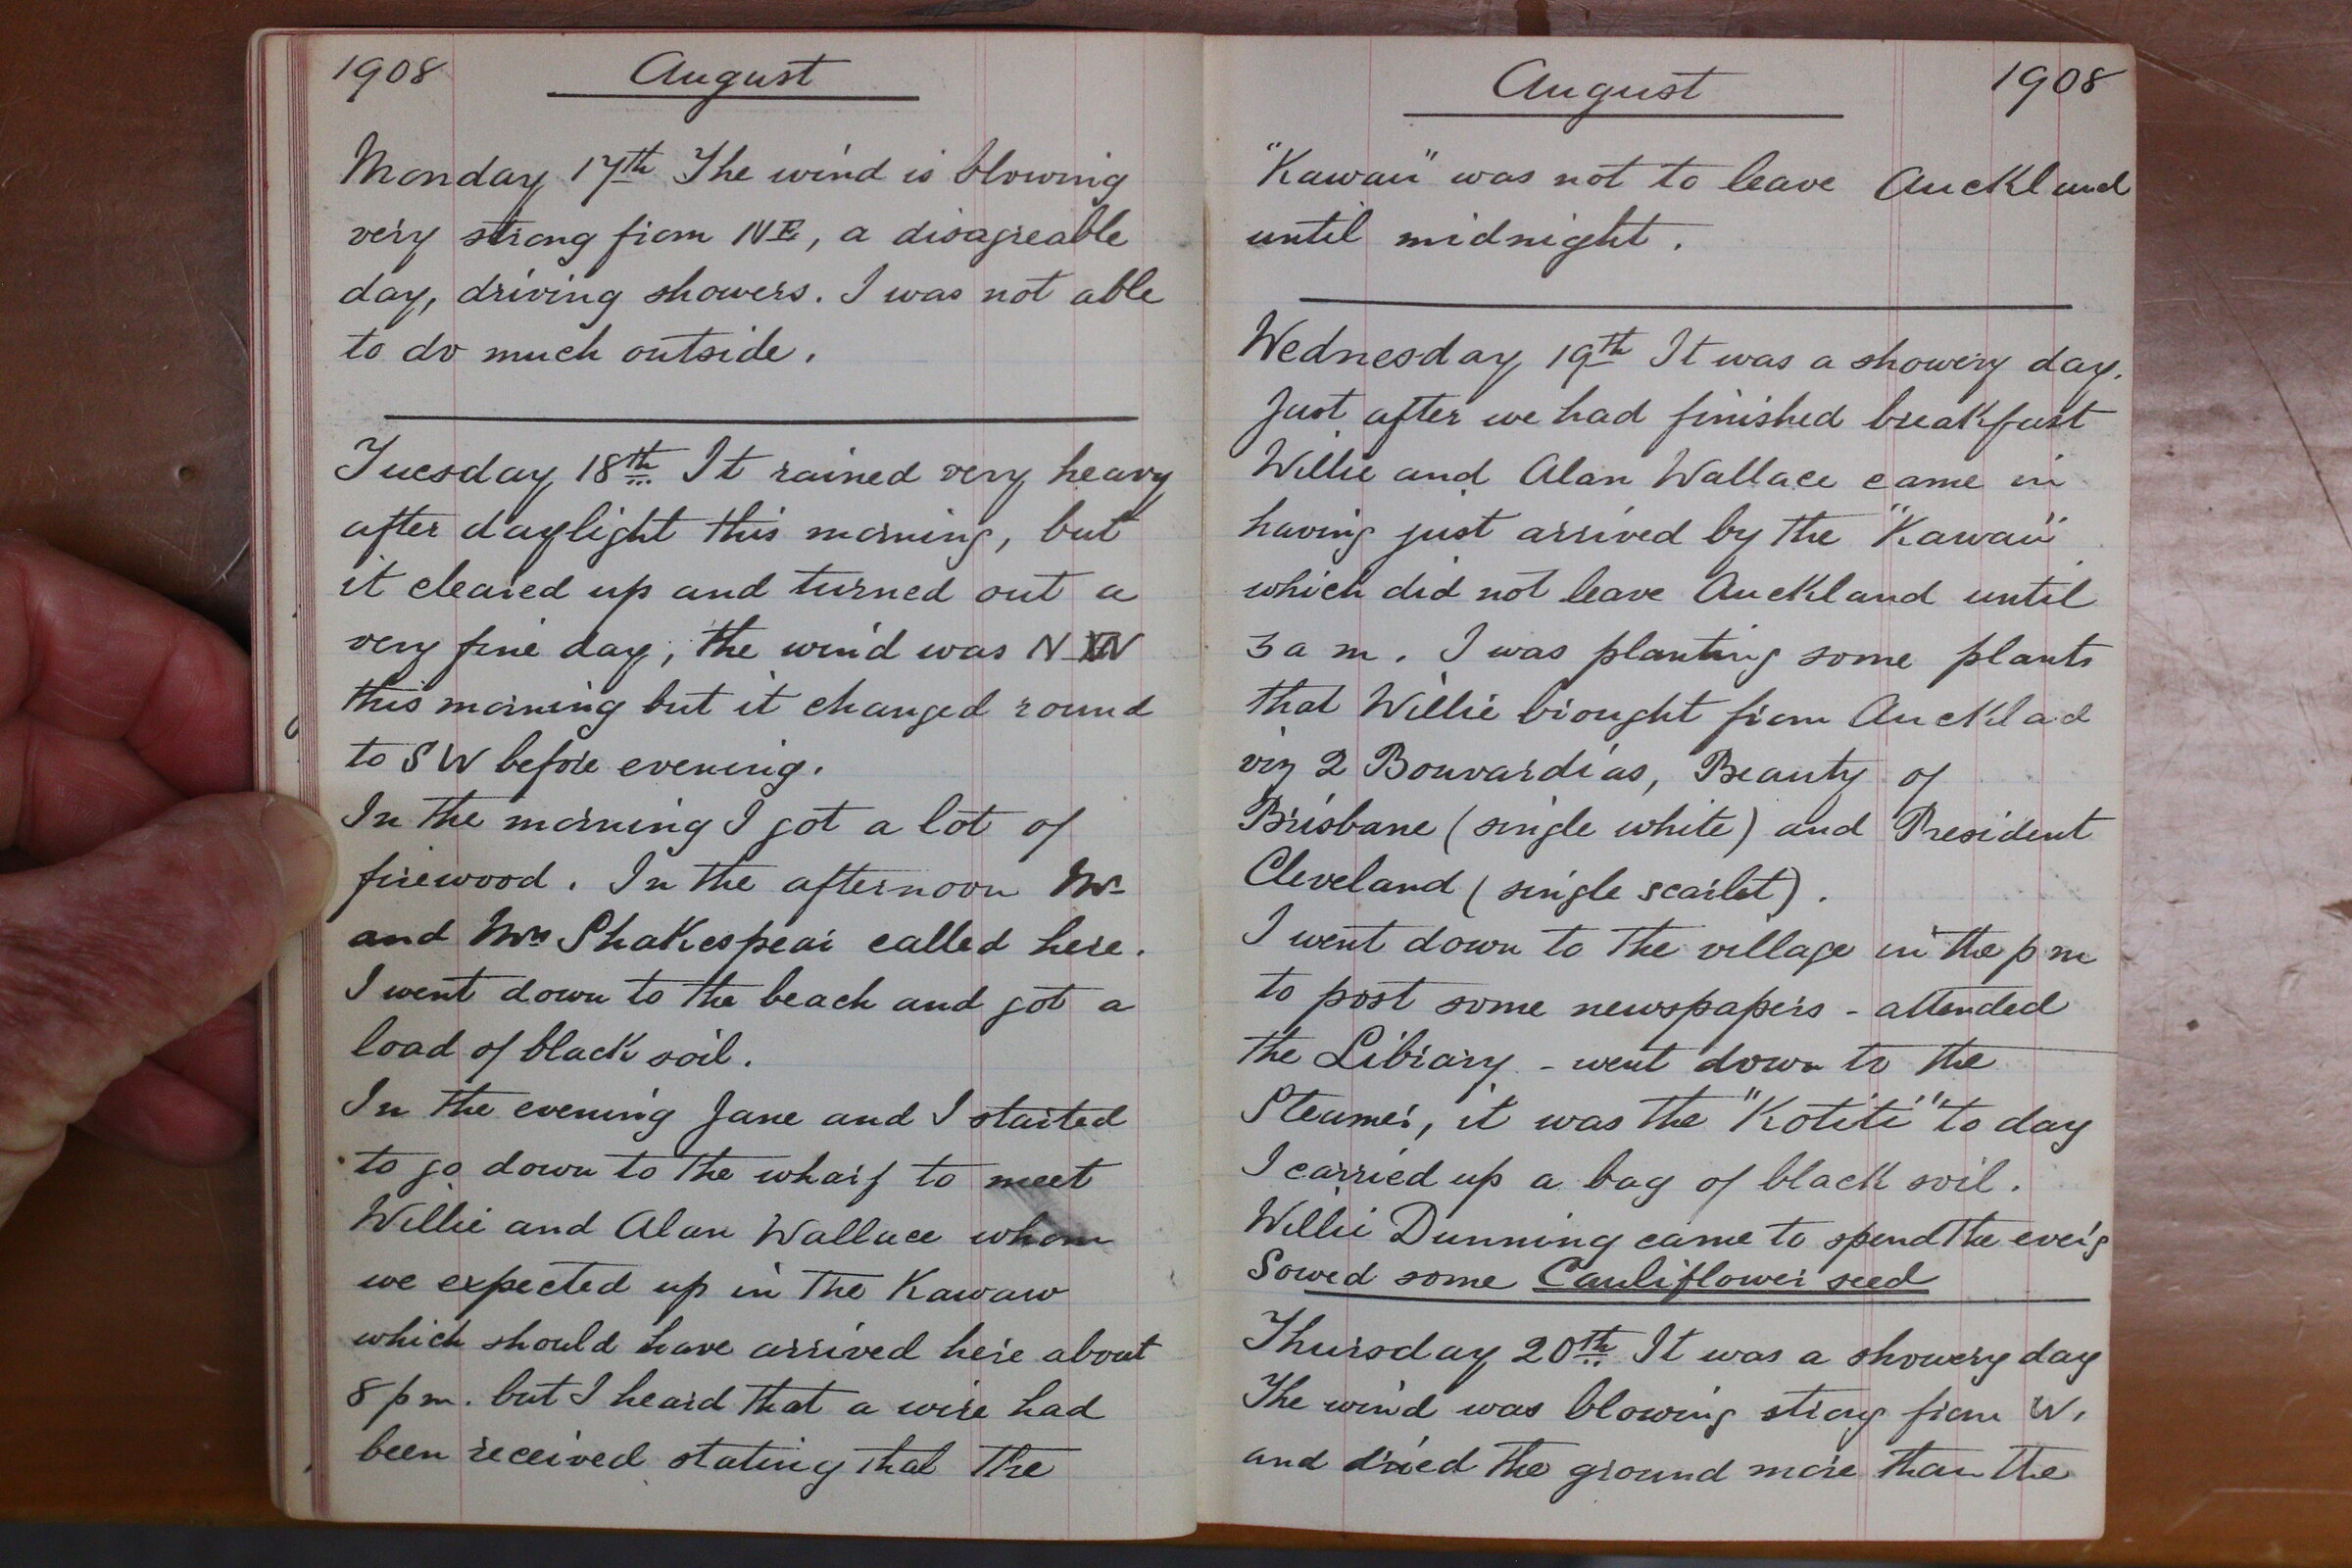 1908 August
Monday 17th The wind is blowing
very strong from NE, a disagreable
day, driving showers. I was not able
to do much outside.
Tuesday 18th It rained very heavy
after daylight this morning, but
it cleared up and turned out a
very fine day, the wind was N W
this morning but it changed round
to SW before evening.
In the morning I got a lot of
firewood. In the afternoon Mr
and Mrs Shakespear called here.
I went down to the beach and got a
load of black soil.
In the evening Jane and I started
to go down to the wharf to meet
Willie and Alan Wallace whom
we expected up in the Kawaw
which should have arrived here about
8 pm. but I heard that a wire had
been received stating that the
August 1908
"Kawau" was not to leave Auckland
until midnight.
Wednesday 19th It was a showery day.
Just after we had finished breakfast
Willie and Alan Wallace came in
having just arrived by the "Kawau"
which did not leave Auckland until
3 a m. I was planting some plants
that Willie brought from Aucklad
viz 2 Bouvardias, Beauty of
Brisbane (single white) and President
Cleveland (single scarlet).
I went down to the village in the p m
to post some newspapers - attended
the Library - went down to the
Steamer, it was the "Kotiti" to day
I carried up a bag of black soil.
Willie Dunning came to spend the eve'g
Sowed some Cauliflower seed
Thursday 20th It was a showery day
The wind was blowing strong from W.
and dried the ground more than the